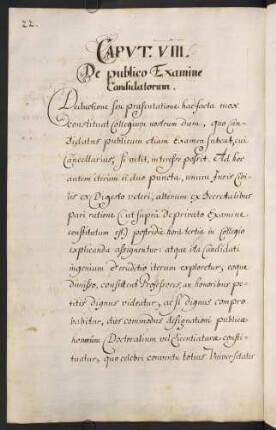 22.
CAPVT. VIII.
De publico Examine
Candidatorum.
praesentatione hac facta mox
constituat Collegium nostrum diem, quo Can-
didatus publicum etiam Examen subeat, cui
Cancellarius, si velit, interesse possit. Ad hoc
autem iterum ei duo puncta, unum Juris Civi-
lis ex Digesto veteri, alterum ex Decretalibus
pari ratione (ut supra de privato Examine
constitutum est) postridie hora tertia in Collegio
explicanda assignentur: atque ita Candidati
ingenium et eruditio iterum exploretur, eoque
dimisso, consilient Professores, an honoribus pe-
titis dignus videatur, ac si dignus compro-
babitur, dies commodus designationi publicae
honorum Doctoralium vel Licentiaturae consti-
tuatur, quo celebri conventu totius Universitatis